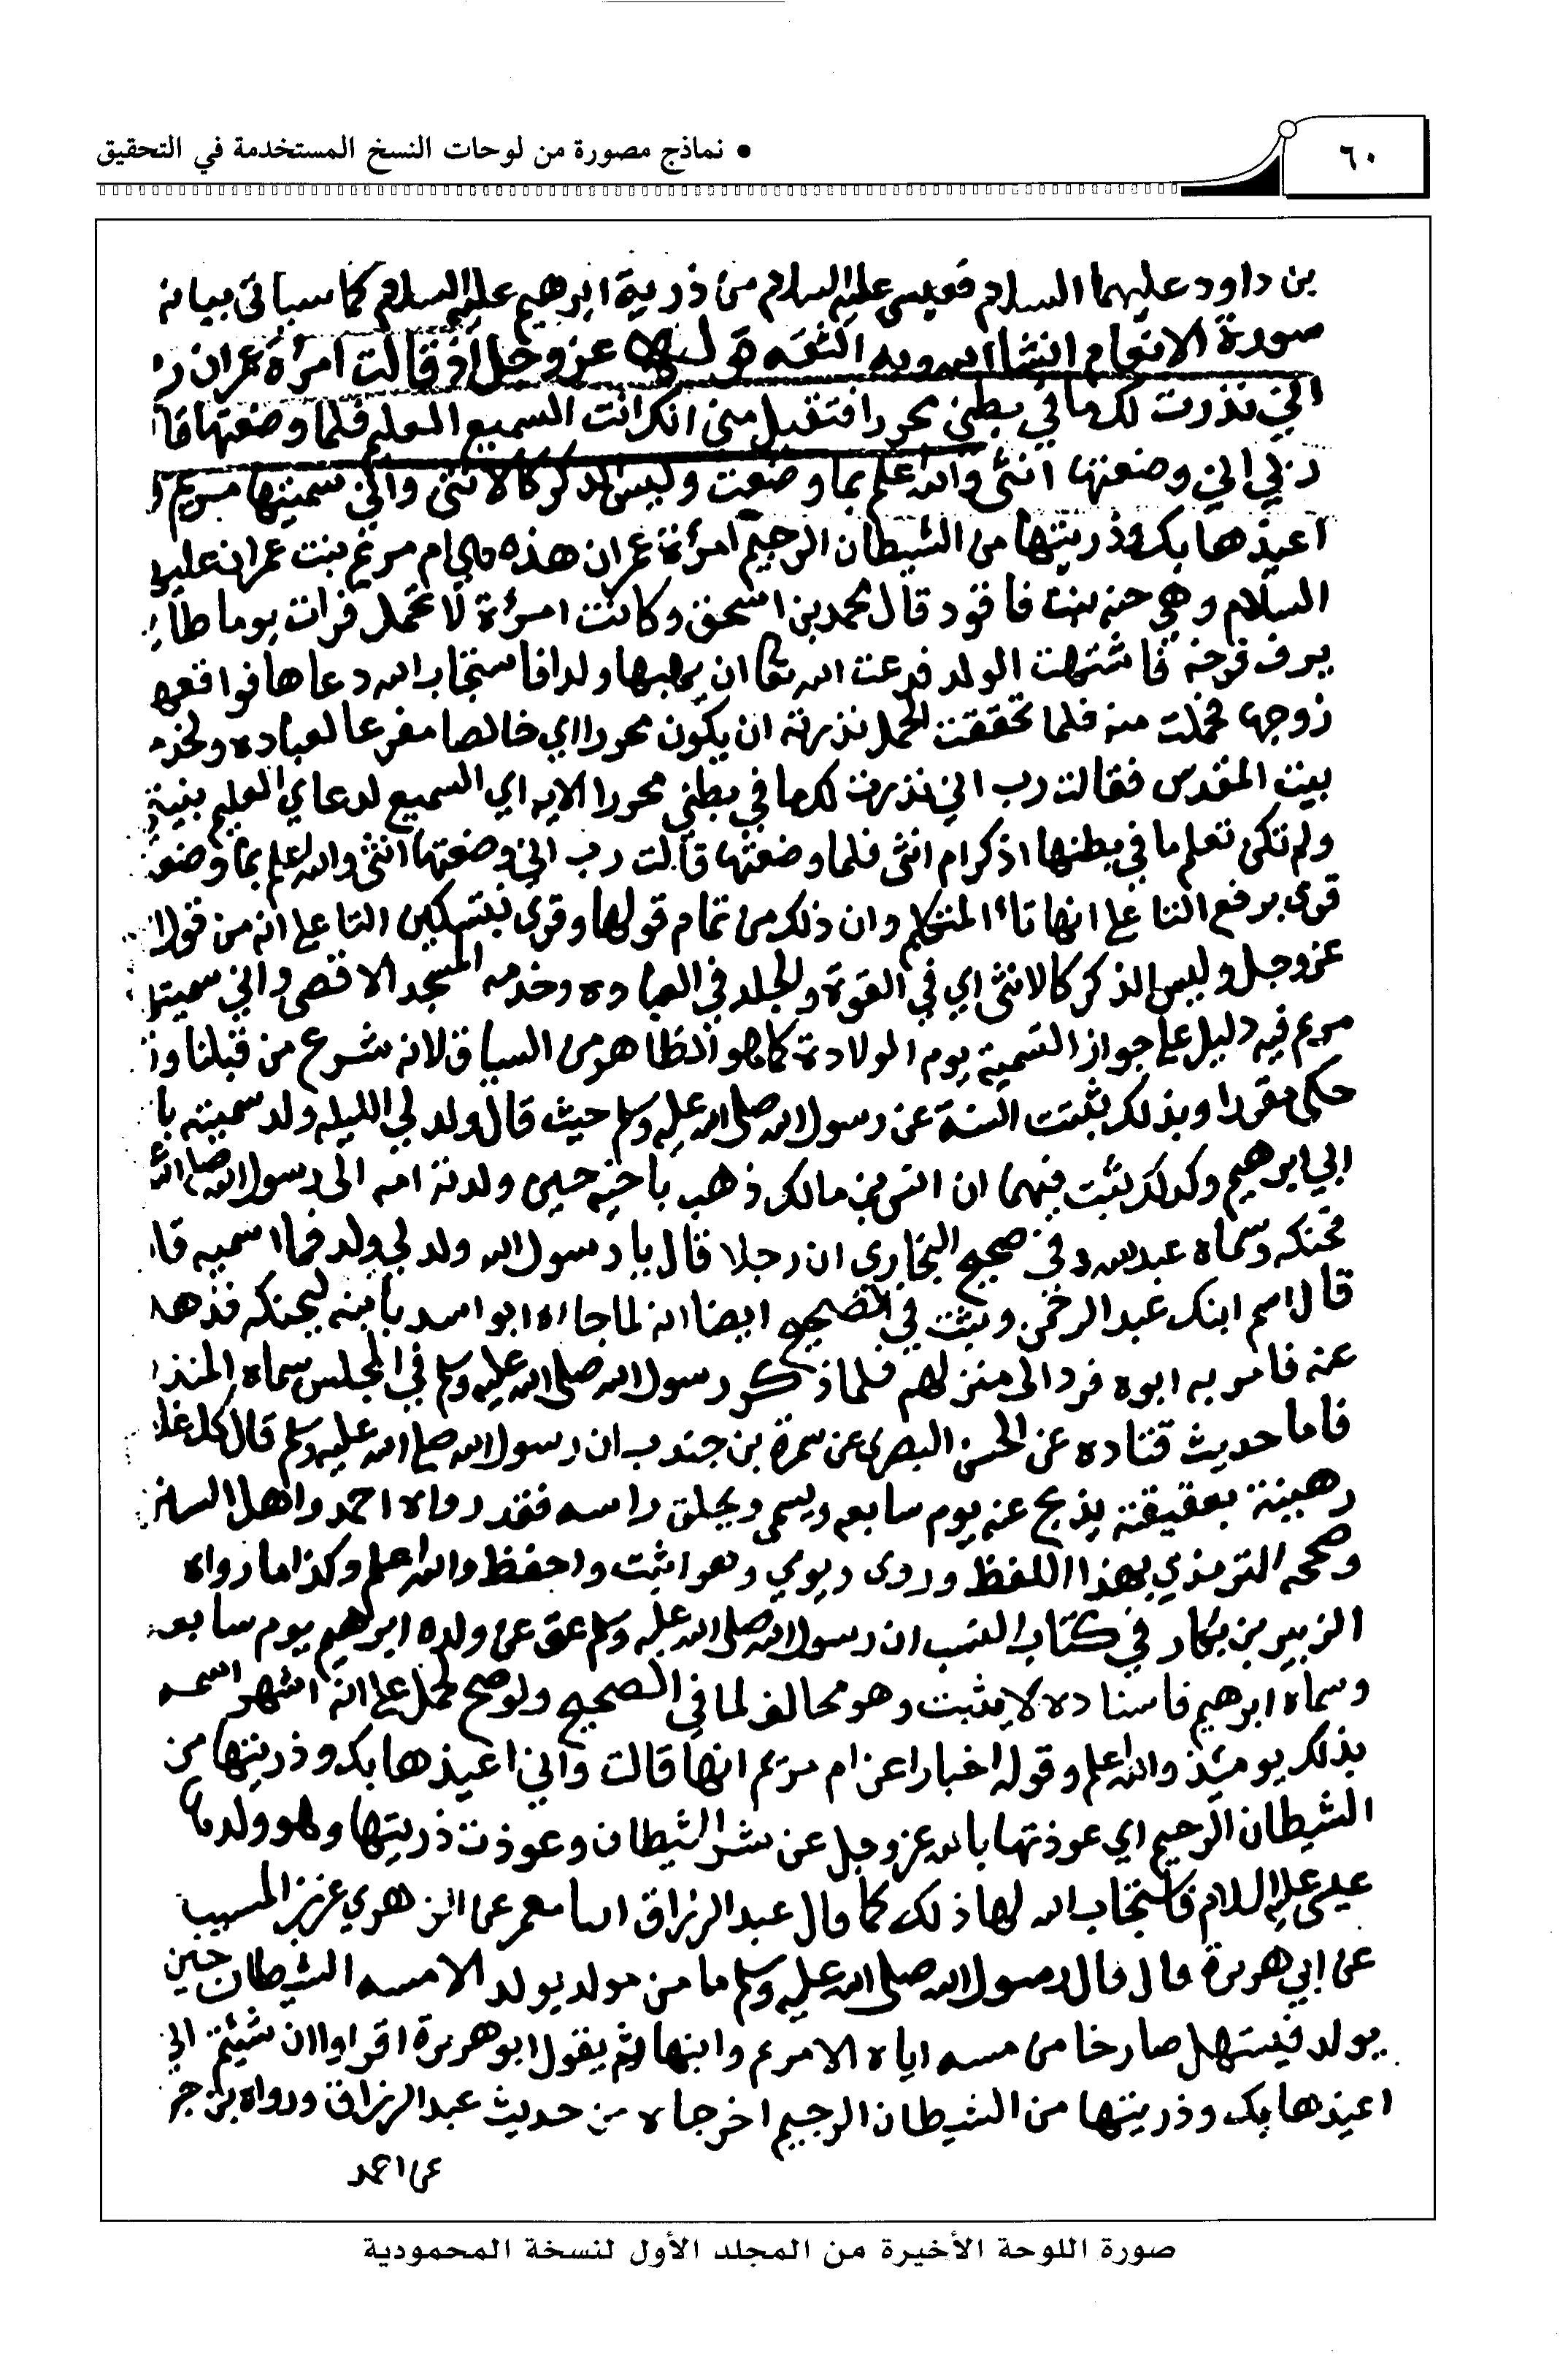 ٦٠
• نماذج مصورة من لوحات النسخ المستخدمة في التحقيق
بن داود عليهما السلام فعيسى عليه السلام من ذرية ابرهيم عليه السلام كما سياتي بيانه
سورة الانعام انشا الله وبه الثقه قوله عز وجل اذ قالت امرأة عمران ر
اني نذرت لك ما في بطني محررا فتقبل مني انك انت السميع العليم فلما وضعتها قا
رب اني وضعتها انثى والله اعلم بما وضعت وليس الذكر كالانثى واني سميتها مريم و
اعيذها بك وذريتها من الشيطان الرجيم امرأة عمران هذه هي ام مريم بنت عمران عليها
السلام وهي حنه بنت فاقود قال محمد بن اسحق وكانت امرأة لا تحمل فرات يوما طائر
يزف فرخه فاشتهت الولد فدعت الله تعا ان يهبها ولدا فاستجاب الله دعاها فواقعها
زوجها فحملت منه فلما تحققت الحمل نذرته ان يكون محررا اي خالصا مفرغا لعباده ولخدمة
بيت المقدس فقالت رب اني نذرت لك ما في بطني محررا الايه اي السميع لدعاي العليم بنيتي
ولم تكن تعلم ما في بطنها اذكرام انثى فلما وضعتها قالت رب اني وضعتها انثى والله اعلم بما وضعت
قرى برفع التا على انها تاء المتكلم وان ذلك من تمام قولها وقرى بتسكين التا على انه من قول
عز وجل وليس الذكر كالانثى اي في القوة والجلد في العباده وخدمه المسجد الاقصى واني سميتها
مريم فيه دليل على جواز التسمية يوم الولادة كما هو الظاهر من السياق لانه شرع من قبلنا و
حكي مقررا وبذلك ثبتت السنة عن رسول الله صلى الله عليه وسلم حيث قال ولد لي الليله ولد سميته با
ابي ابرهيم وكذلك ثبت فيهما ان انس بن مالك ذهب باخيه حين ولدته امه الى رسول الله صلى الله
فحنكه وسماه عبد الله وفي صحيح البخاري ان رجلا قال يا رسول الله ولد لي ولد فما اسميه قا
قال اسم ابنك عبد الرحمن وثبت في الصحيح ايضا انه لما جاءه ابو اسيد بابنه ليحنكه فذهل
عنه فامر به ابوه فرد الى منزلهم فلما ذكر رسول الله صلى الله عليه وسلم في المجلس سماه المنذر
فاما حديث قتاده عن الحسن البصري عن سمرة بن جندب ان رسول الله صلى الله عليه وسلم قال كل غلا
رهينة بعقيقته يذبح عنه يوم سابعه ويسمى ويحلق راسه فقد رواه احمد واهل السنن
وصححه الترمذي بهذا اللفظ وروى ويدمي وهو اثبت واحفظ والله اعلم وكذا ما رواه
الزبير بن بكار في كتاب النسب ان رسول الله صلى الله عليه وسلم عق عن ولده ابرهيم يوم سابعه
وسماه ابرهيم فاسناده لا يثبت وهو مخالف لما في الصحيح ولو صح لحمل على انه اشهر اسمه
بذلك يومئذ والله اعلم وقوله اخبارا عن ام مريم انها قالت واني اعيذها بك وذريتها من
الشيطان الرجيم اي عوذتها بالله عز وجل عن شر الشيطان وعوذت ذريتها وهو ولدها
عيسى عليه السلام فاستجاب الله لها ذلك كما قال عبد الرزاق انبا معمر عن الزهري عن بن المسيب
عن ابي هريرة قال قال رسول الله صلى الله عليه وسلم ما من مولد يولد الا مسه الشيطان حين
يولد فيستهل صارخا من مسه اياه الا مريم وابنها ثم يقول ابو هريرة اقراوا ان شيئتم اني
اعيذها بك وذريتها من الشيطان الرجيم اخرجاه من حديث عبد الرزاق ورواه بن جر
عن احمد
صورة اللوحة الأخيرة من المجلد الأول لنسخة المحمودية